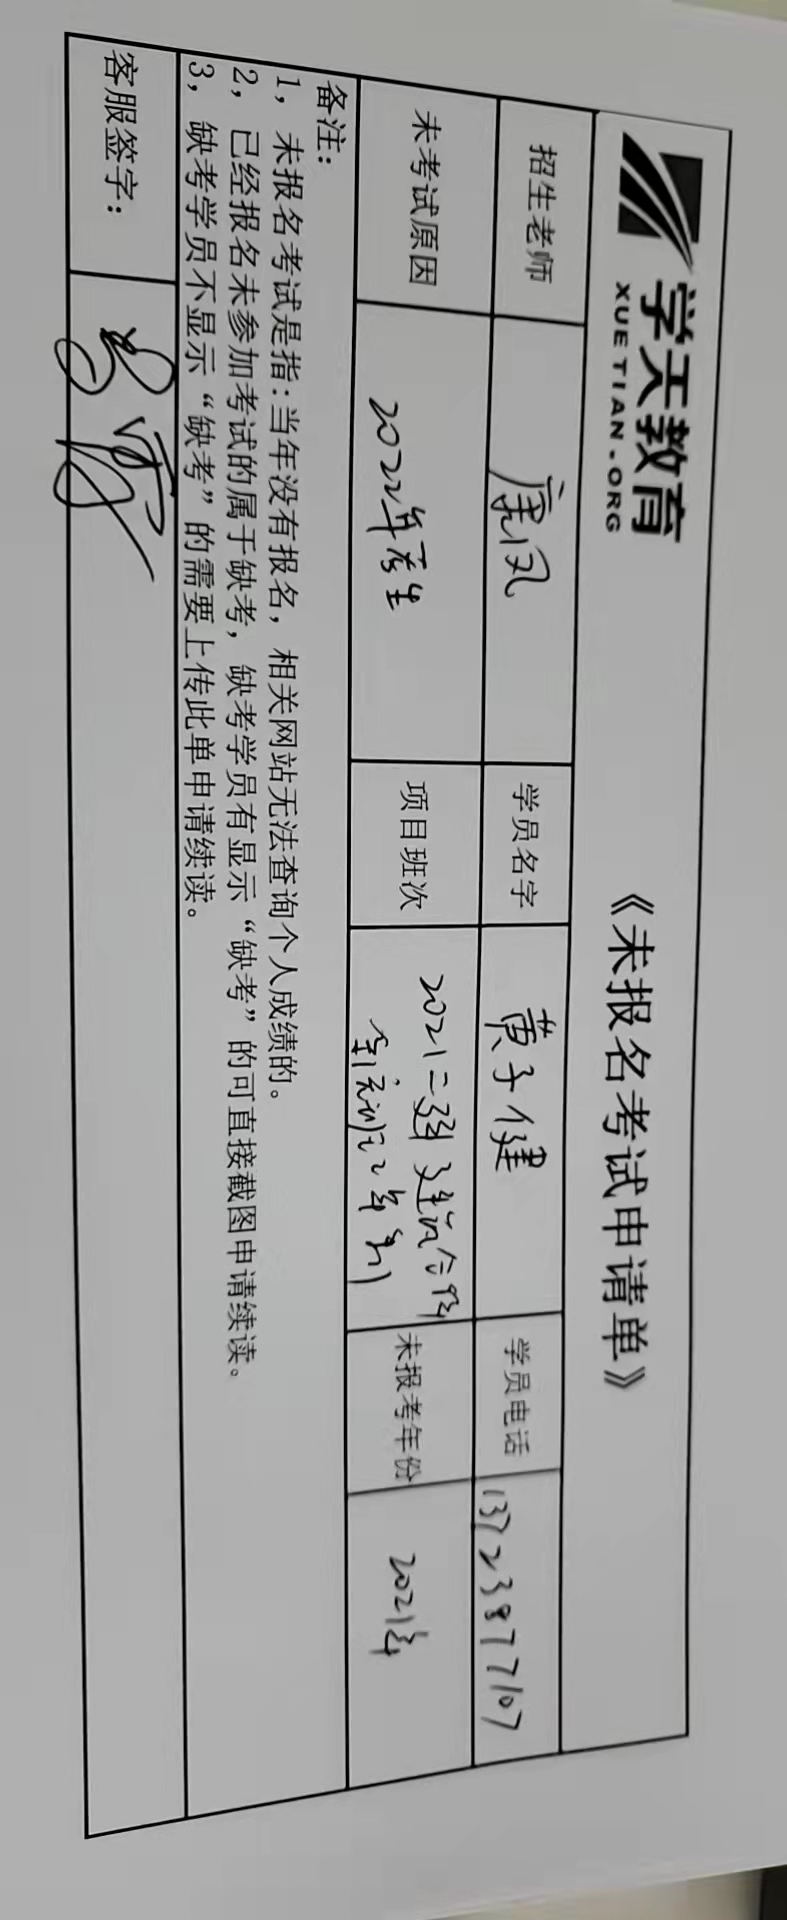 学天教育
XUETIAN.ORG
《未报名考试申请单》
招生老师
学员名字 黄子健
学员电话 13723877107
未考试原因 2022年考生
项目班次 2021二建建筑
未报考年份 2021年
备注：
1，未报名考试是指：当年没有报名，相关网站无法查询个人成绩的。
2，已经报名未参加考试的属于缺考，缺考学员有显示“缺考”的可直接截图申请续读。
3，缺考学员不显示“缺考”的需要上传此单申请续读。
客服签字：